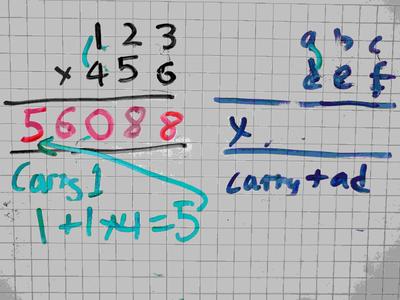 1 2 3
x 4 5 6
5 6 0 8 8
Carry 1
1 + 1 x 4 = 5
a b c
d e f
x .
carry + ad